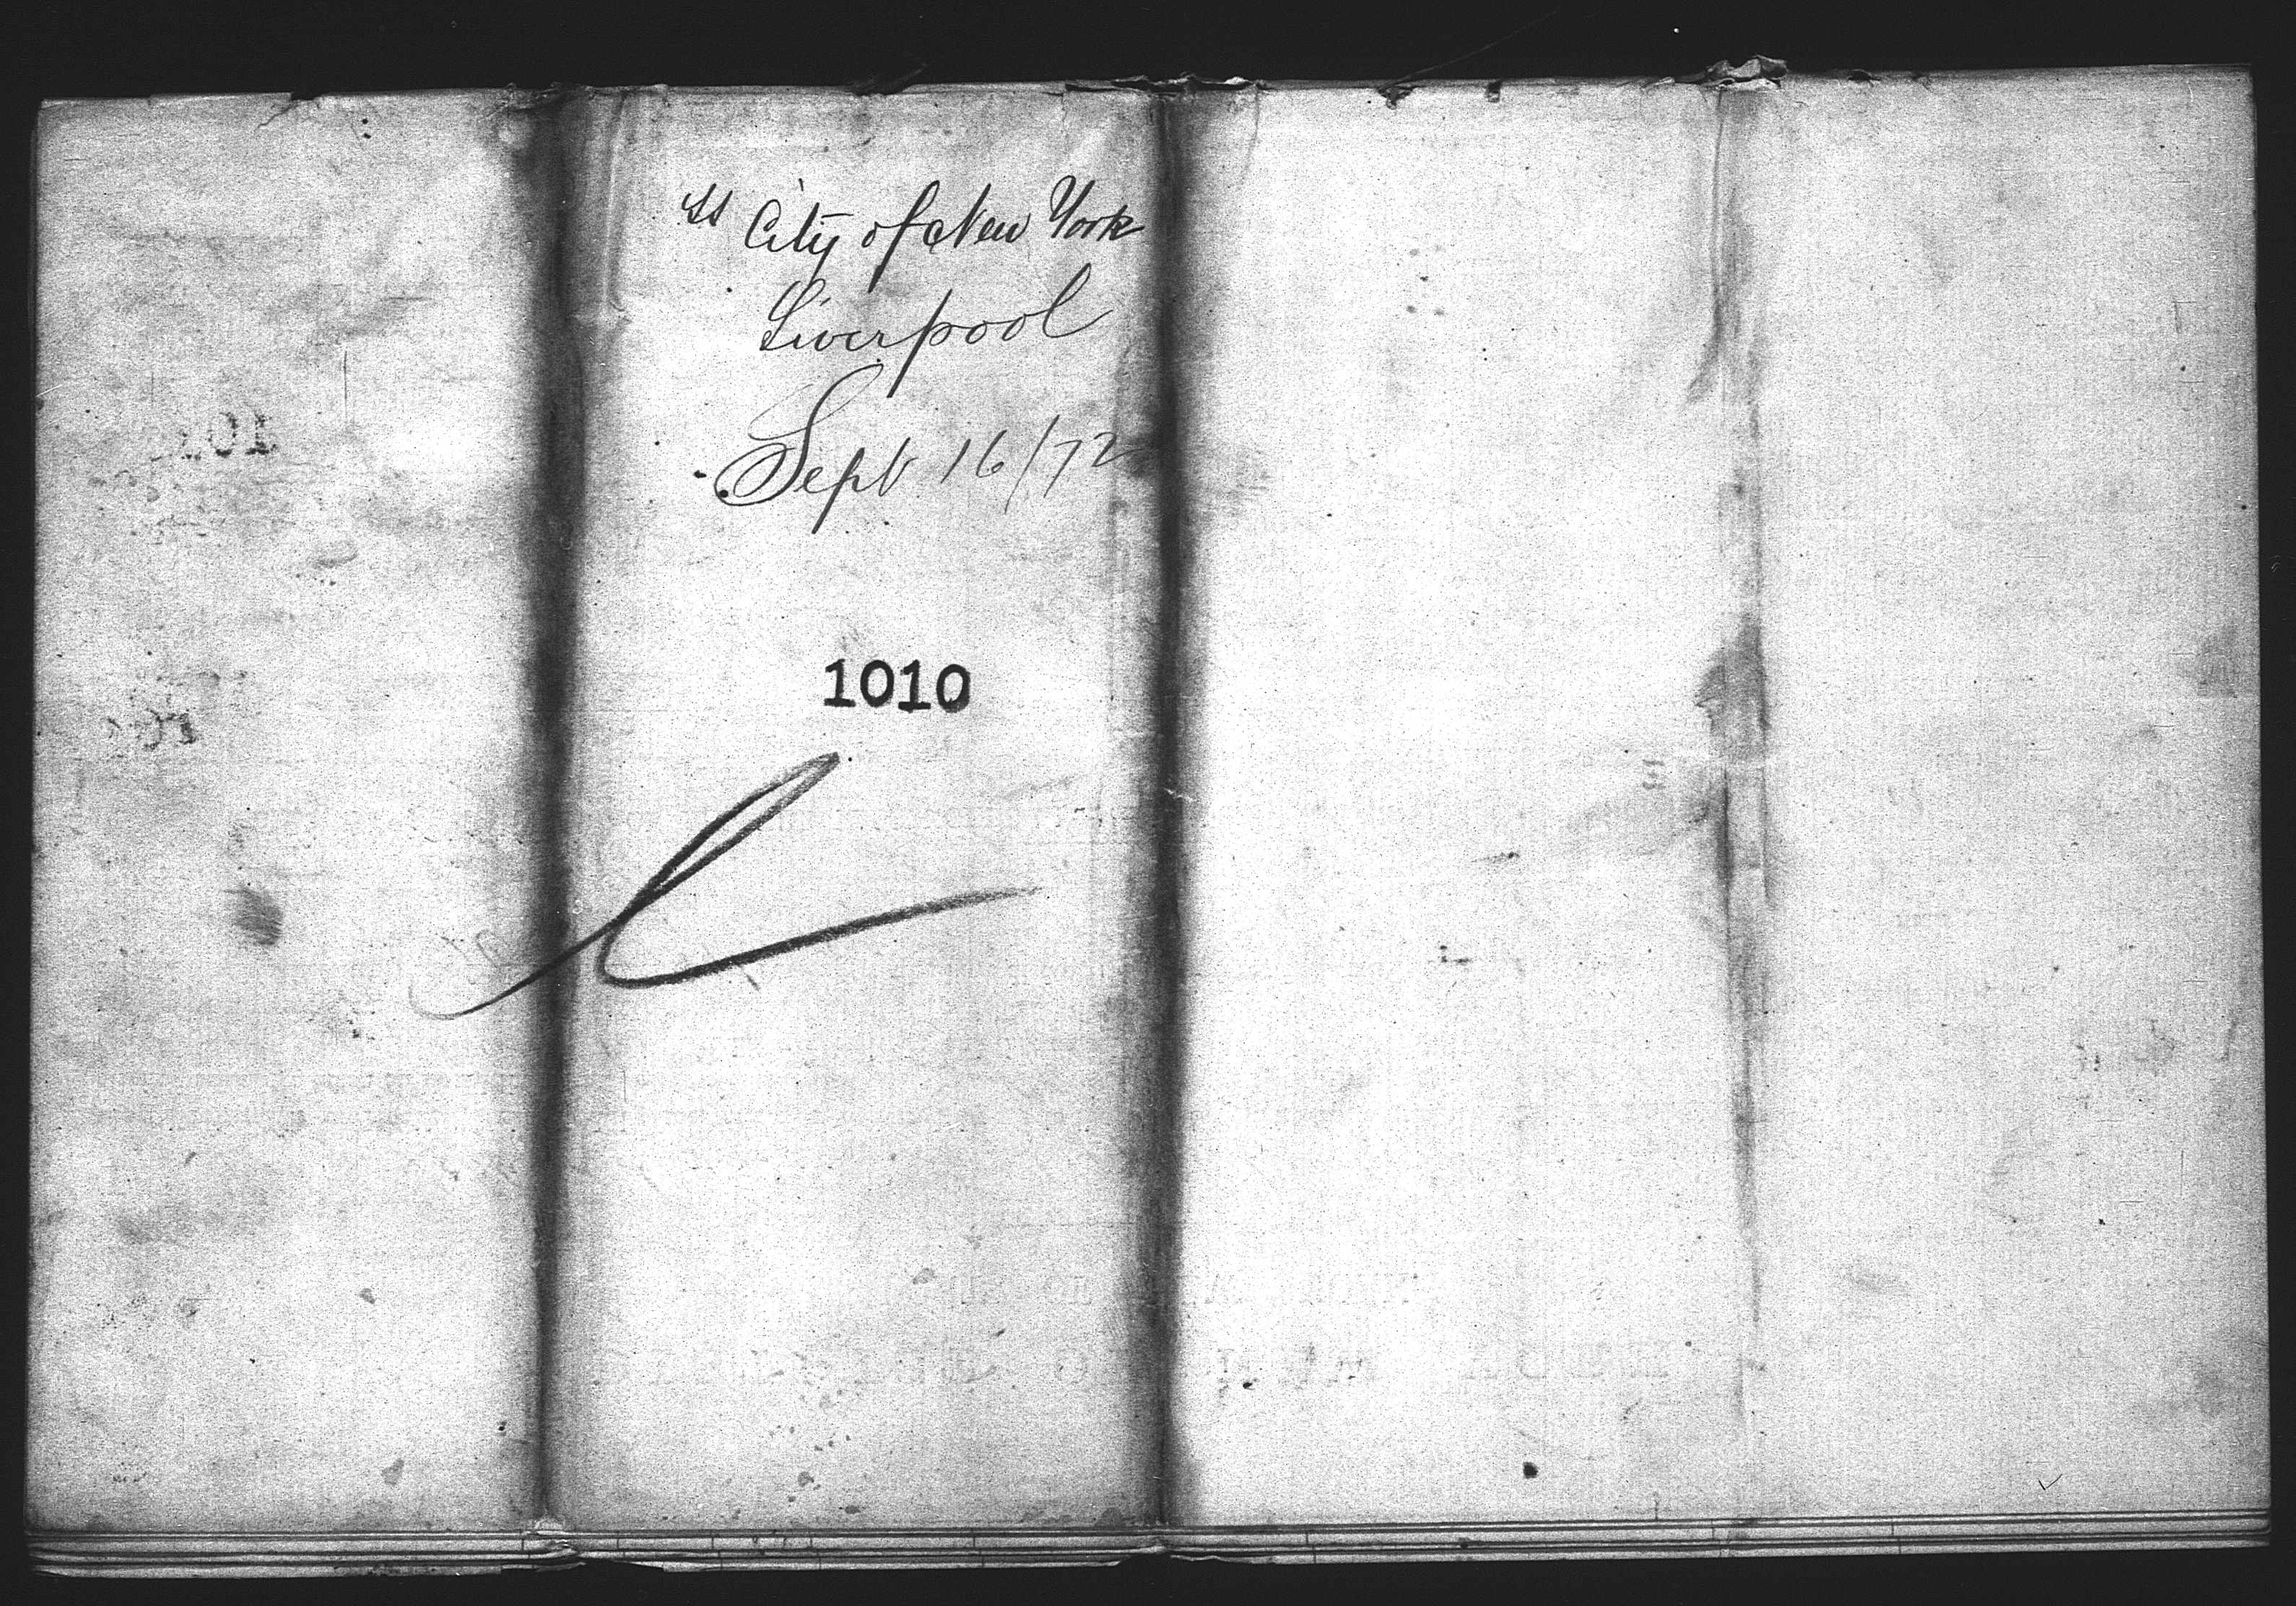 SS City of New York
Liverpool
Sept 16/72
1010